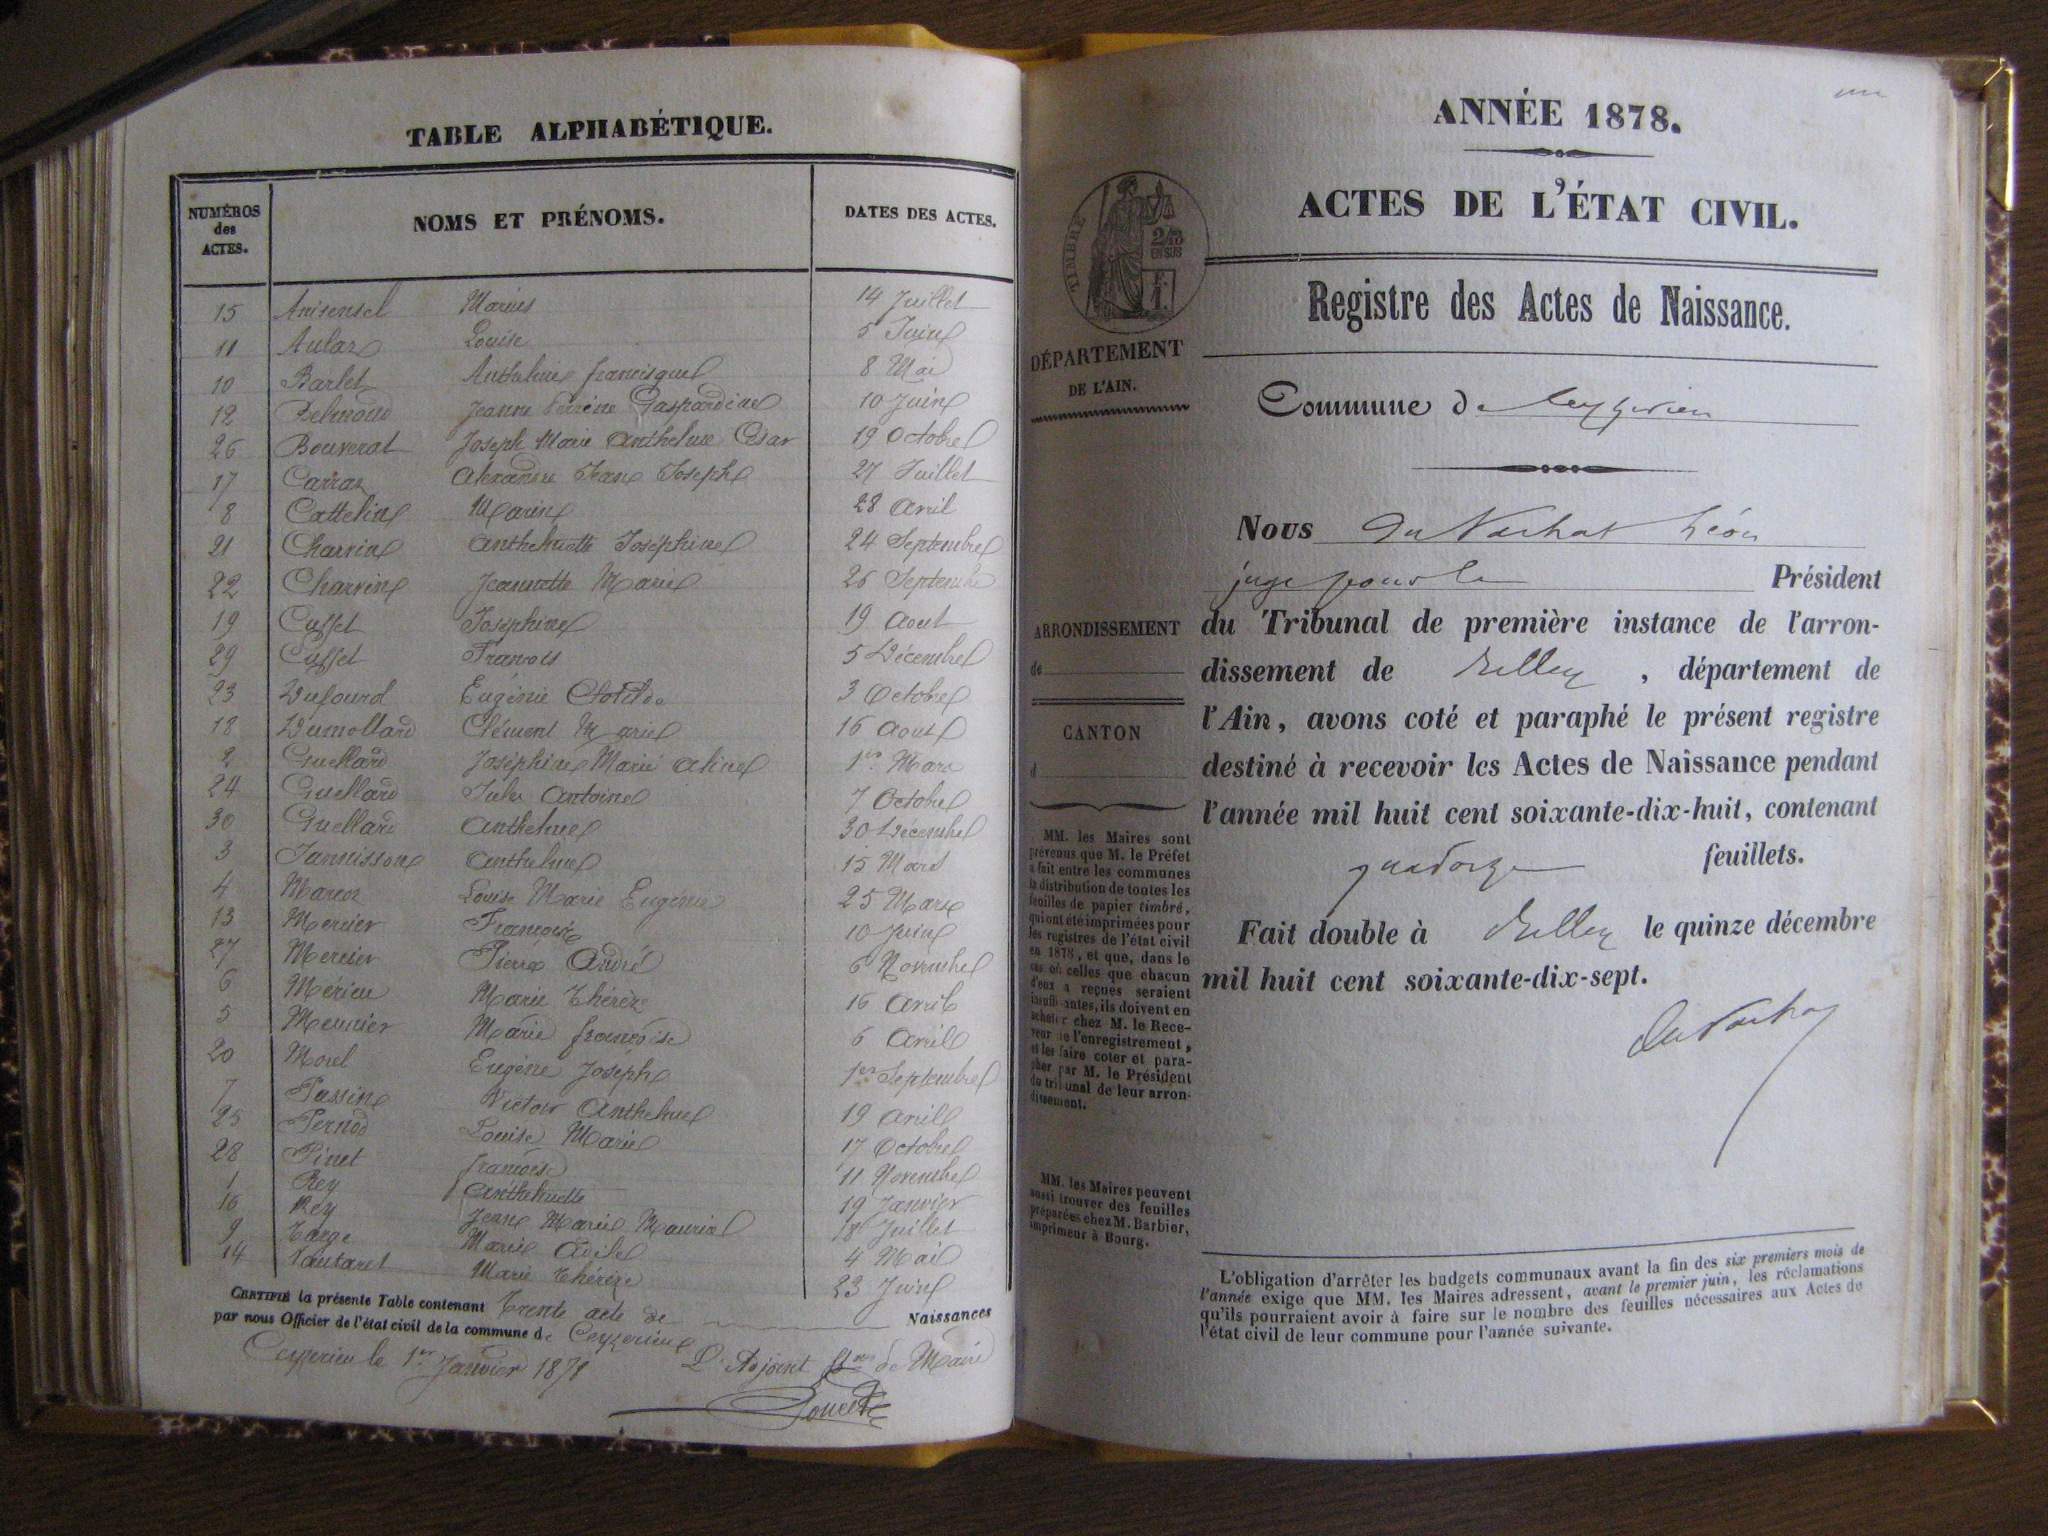 TABLE ALPHABÉTIQUE.
NUMÉROS des ACTES. NOMS ET PRÉNOMS. DATES DES ACTES.
15 Marius 14 Juillet
11 Louise 5 Juin
10 Barlet Anthelme francisque 8 Mai
12 Belmond Jeanne Perrine Gaspardine 10 Juin
26 Bouverat Joseph Marie Anthelme César 19 Octobre
17 Carraz Alexandre Jean Joseph 27 Juillet
8 Cattelin Marin 28 Avril
21 Charvin Anthelmette Joséphine 24 Septembre
22 Charvin Jeannette Marie 26 Septembre
19 Cusset Joséphine 19 Aout
29 Cusset François 5 Décembre
23 Dufourd Eugénie Clotilde 3 Octobre
18 Dumollard Clément Marie 16 Aout
2 Guellard Joséphine Marie Aline 1er Mars
24 Guellard Jules Antoine 7 Octobre
30 Guellard Anthelme 30 Décembre
3 Jannisson Anthelme 15 Mars
4 Louise Marie Eugénie 25 Mars
13 Mercier Françoise 10 Juin
27 Mercier Pierre André 6 Novembre
6 Mérieu Marie Thérèze 16 Avril
5 Meunier Marie françoise 6 Avril
20 Morel Eugène Joseph 1er Septembre
7 Passin Victor Anthelme 19 Avril
25 Pernod Louise Marie 17 Octobre
28 Pinet françoise 11 Novembre
1 Rey Anthelmette 19 Janvier
16 Rey Jean Marie Mauriol 18 Juillet
9 Targe Marie Adèle 4 Mai
14 Vautaret Marie Thérèze 23 Juin
CERTIFIÉ la présente Table contenant Trente acte de Naissances
par nous Officier de l'état civil de la commune de Ceyzerieu
Ceyzerieu le 1er Janvier 1878 L'Adjoint de Maire
ANNÉE 1878.
ACTES DE L'ÉTAT CIVIL.
Registre des Actes de Naissance.
TIMBRE
2/10
EN SUS
DÉPARTEMENT
DE L'AIN.
Commune de Ceyzerieu
Nous Du Nachat Léon
juge pour le Président
ARRONDISSEMENT
de
CANTON
d
du Tribunal de première instance de l'arron-
dissement de Belley, département de
l'Ain, avons coté et paraphé le présent registre
destiné à recevoir les Actes de Naissance pendant
l'année mil huit cent soixante-dix-huit, contenant
quatorze feuillets.
Fait double à Belley le quinze décembre
mil huit cent soixante-dix-sept.
Du Nachat
MM. les Maires sont
prévenus que M. le Préfet
a fait entre les communes
la distribution de toutes les
feuilles de papier timbré,
qui ont été imprimées pour
les registres de l'état civil
en 1878, et que, dans le
cas où celles que chacun
d'eux a reçues seraient
insuffisantes, ils doivent en
acheter chez M. le Rece-
veur de l'enregistrement,
et les faire coter et para-
pher par M. le Président
du tribunal de leur arron-
dissement.
MM. les Maires peuvent
aussi trouver des feuilles
préparées chez M. Barbier,
imprimeur à Bourg.
L'obligation d'arrêter les budgets communaux avant la fin des six premiers mois de
l'année exige que MM. les Maires adressent, avant le premier juin, les réclamations
qu'ils pourraient avoir à faire sur le nombre des feuilles nécessaires aux Actes de
l'état civil de leur commune pour l'année suivante.